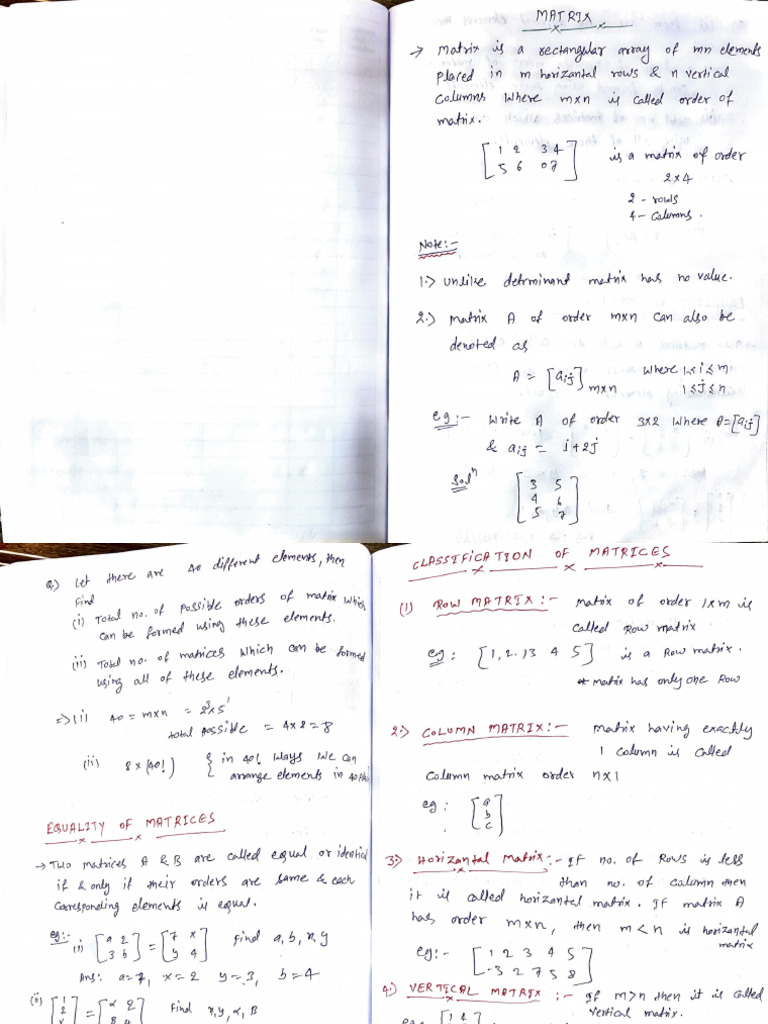 MATRIX
→ Matrix is a rectangular array of mn elements
placed in m horizontal rows & n vertical
columns where m×n is called order of
matrix.
[1 2 3 4
5 6 0 7] is a matrix of order
2×4
2 - rows
4 - columns.
Note:-
1.) Unlike determinant matrix has no value.
2.) Matrix A of order m×n can also be
denoted as
A = [aij] m×n where 1≤i≤m
1≤j≤n
eg:- Write A of order 3×2 where A=[aij]
& aij = i+2j
Solⁿ
[3 5
4 6
5 7]
Q.) Let there are 40 different elements, then
find
(i) Total no. of possible orders of matrix which
can be formed using these elements.
(ii) Total no. of matrices which can be formed
using all of these elements.
=>(i) 40 = m×n = 2³×5¹
total possible = 4×2 = 8
(ii) 8×(40!) { in 40! ways we can
arrange elements in 40
EQUALITY OF MATRICES
→ Two matrices A & B are called equal or identical
if & only if their orders are same & each
corresponding elements is equal.
eg:-
(i) [a 2
3 b] = [7 x
y 4] find a, b, x, y
Ans: a=7, x=2 y=3, b=4
(ii) [1
2 = [α 2 find x, y, α, β
CLASSIFICATION OF MATRICES
(1) ROW MATRIX:- Matrix of order 1×m is
called Row matrix
eg: [1, 2. 13 4 5] is a Row matrix.
* Matrix has only one Row
2.) COLUMN MATRIX:- Matrix having exactly
1 column is called
column matrix order n×1
eg: [a
b
c]
3.) Horizantal Matrix:- If no. of Rows is less
than no. of column then
it is called horizontal matrix. If matrix A
has order m×n, then m<n is horizontal
matrix
eg:- [1 2 3 4 5
-3 2 7 5 8]
4.) VERTICAL MATRIX:- If m>n then it is called
vertical matrix.
eg:- [1 2